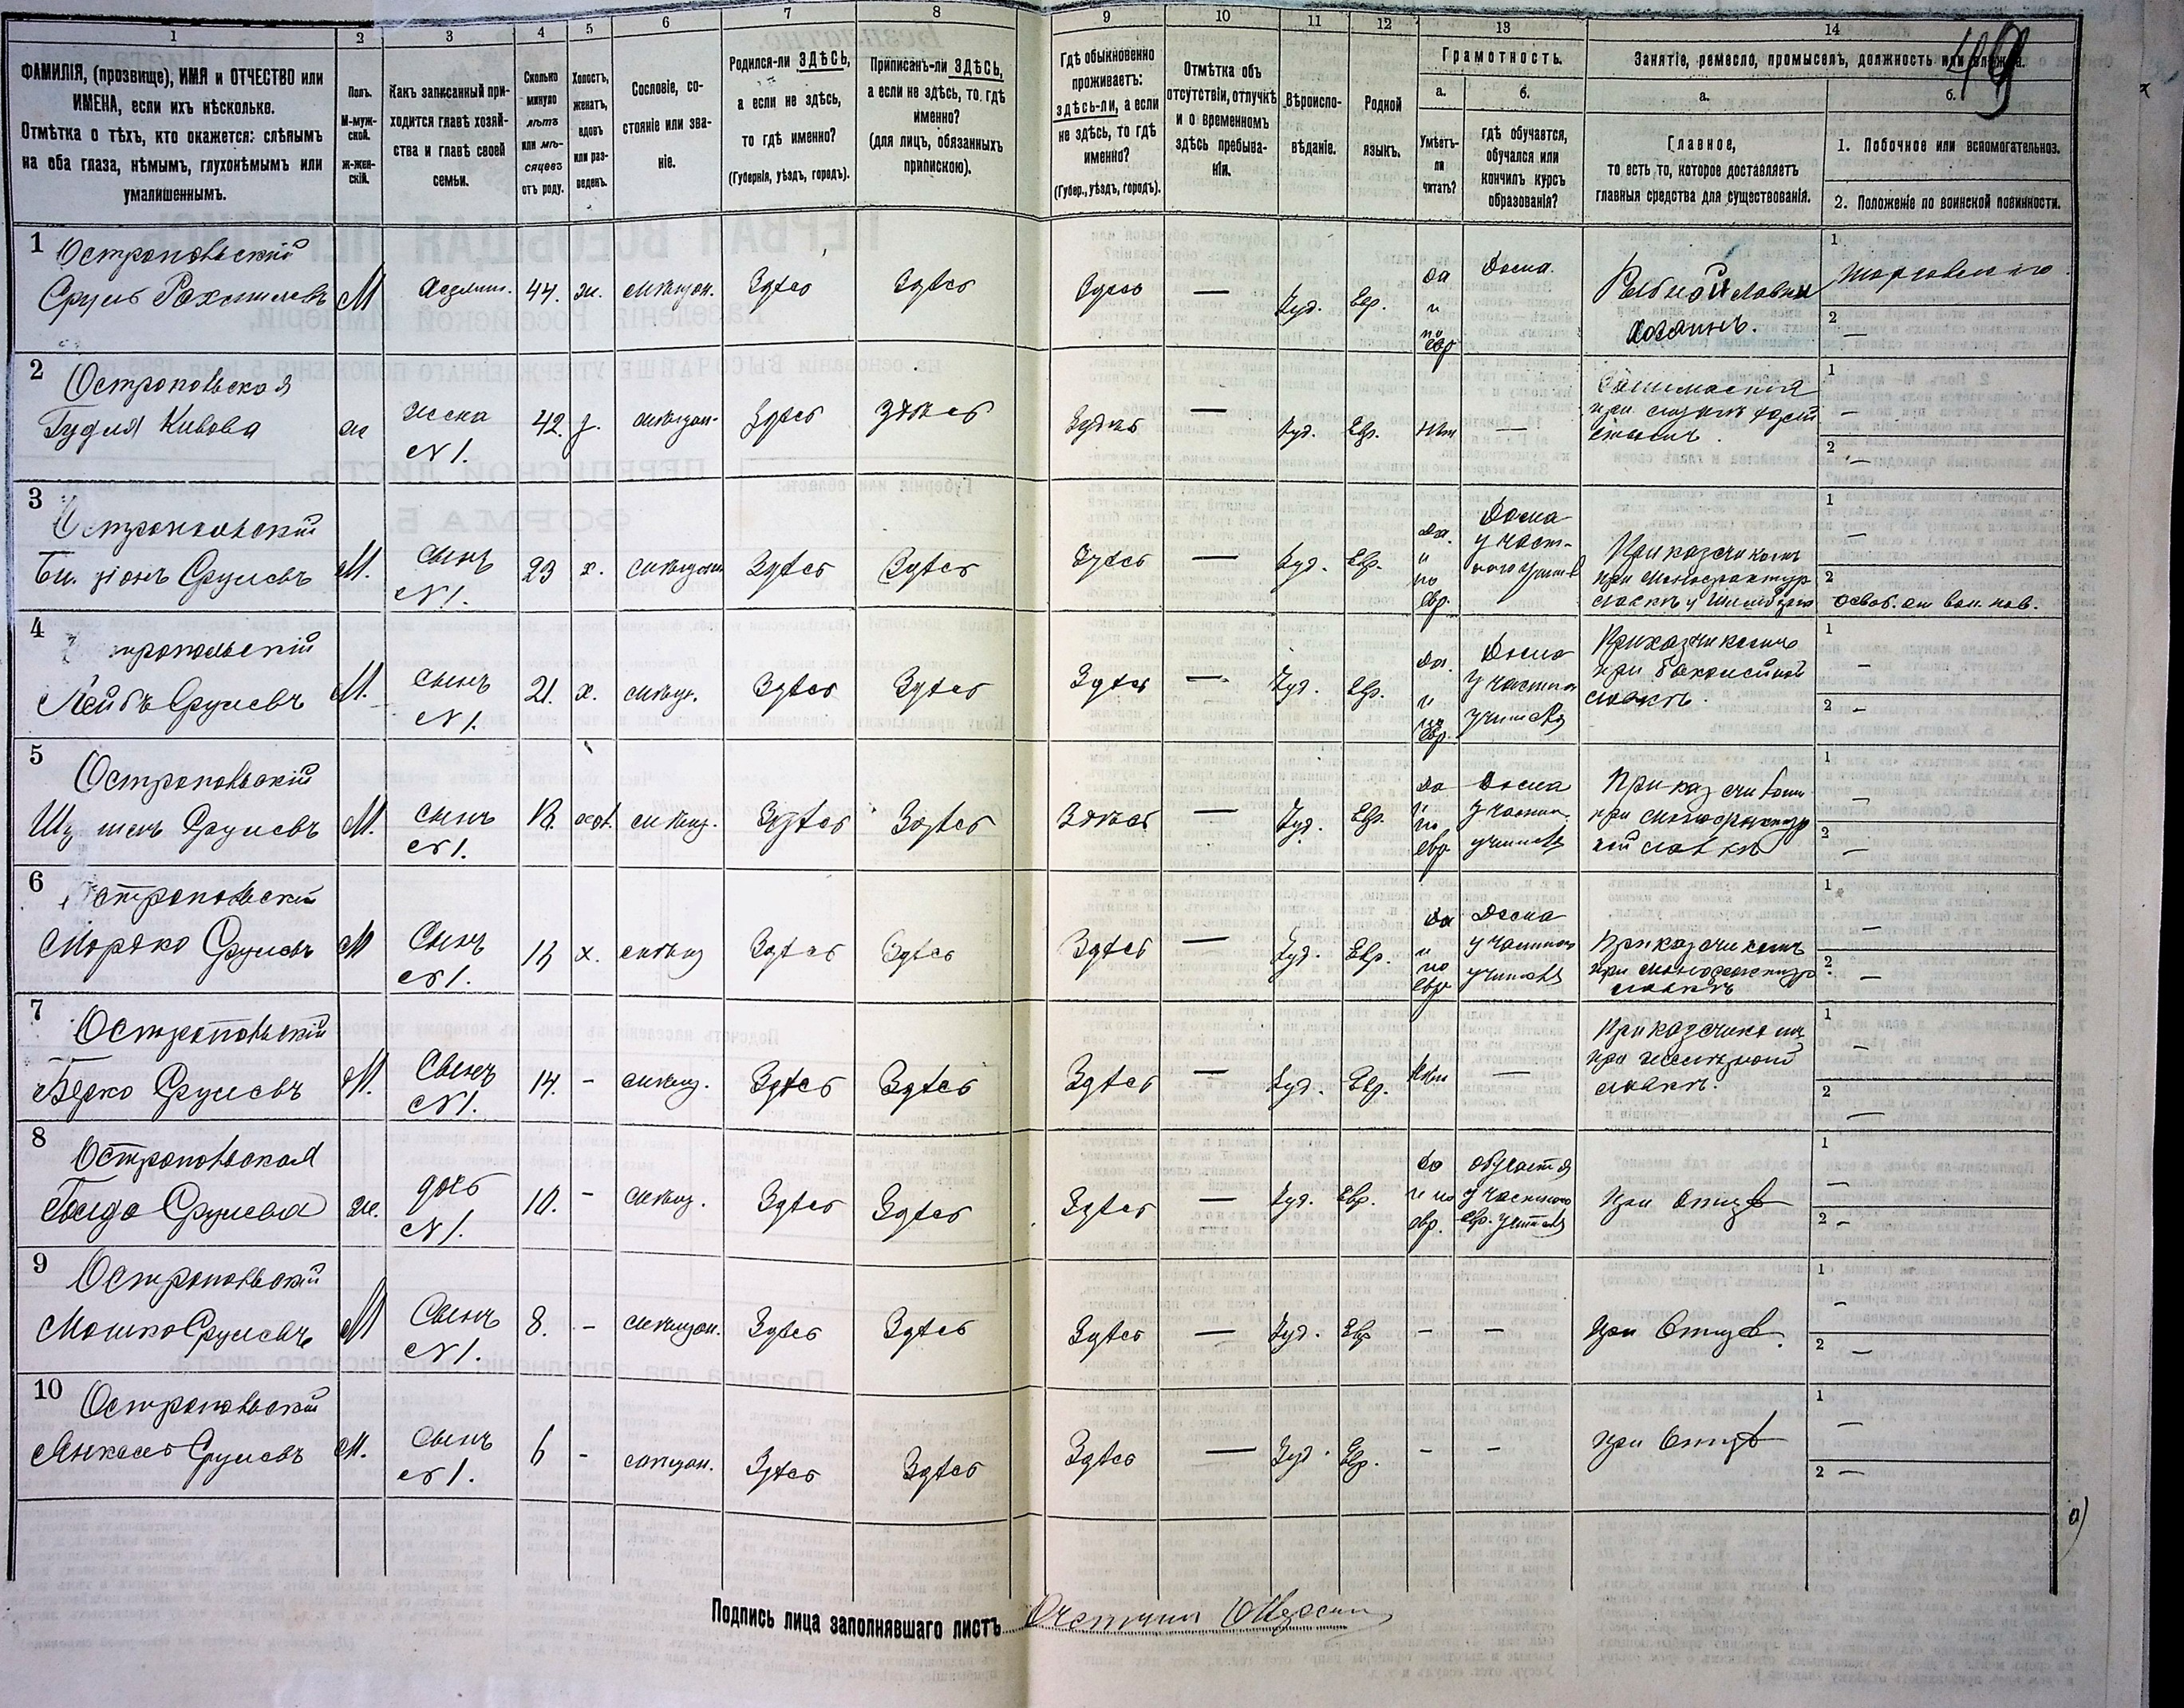 1 2 3 4 5 6 7 8 9 10 11 12 13 14
ФАМИЛІЯ, (прозвище), ИМЯ и ОТЧЕСТВО или
ИМЕНА, если ихъ нѣсколько.
Отмѣтка о тѣхъ, кто окажется: слѣпымъ
на оба глаза, нѣмымъ, глухонѣмымъ или
умалишеннымъ.
Полъ.
М-муж-
ской.
ж-жен-
скій.
Какъ записанный при-
ходится главѣ хозяй-
ства и главѣ своей
семьи.
Сколько
минуло
лѣтъ
или мѣ-
сяцевъ
отъ роду.
Холостъ,
женатъ,
вдовъ
или раз-
веденъ.
Сословіе, со-
стояніе или зва-
ніе.
Родился-ли ЗДѢСЬ,
а если не здѣсь,
то гдѣ именно?
(Губернія, уѣздъ, городъ).
Приписанъ-ли ЗДѢСЬ,
а если не здѣсь, то гдѣ
именно?
(для лицъ, обязанныхъ
припискою).
Гдѣ обыкновенно
проживаетъ:
здѣсь-ли, а если
не здѣсь, то гдѣ
именно?
(Губер., уѣздъ, городъ).
Отмѣтка объ
отсутствіи, отлучкѣ
и о временномъ
здѣсь пребыва-
ніи.
Вѣроиспо-
вѣданіе.
Родной
языкъ.
Грамотность.
а.
Умѣетъ-
ли
читать?
б.
гдѣ обучается,
обучался или
кончилъ курсъ
образованія?
Занятіе, ремесло, промыселъ, должность или служба.
а.
Главное,
то есть то, которое доставляетъ
главныя средства для существованія.
б.
1. Побочное или вспомогательное.
2. Положеніе по воинской повинности.
1 Остропольскій
Сруль Рахмилевъ М хозяинъ. 44. ж. мѣщан. Здѣсь Здѣсь Здѣсь — Іуд. Евр. да и по евр Дома. Рыбной лавки хозяинъ. 1 торговецъ 2 —
2 Остропольская
Гудля Кивова ж жена №1. 42. з. мѣщан. Здѣсь Здѣсь Здѣсь — Іуд. Евр. нѣт — 1 — 2 —
3 Остропольскій
Бен-ціонъ Срулевъ М. сынъ №1. 23 х. мѣщан. Здѣсь Здѣсь Здѣсь — Іуд. Евр. да. и по евр. Дома у част- ного учит. Приказчикомъ при манафактур лавкѣ у 1 — 2 освоб. от воин. пов.
4 Остропольскій
Лейбъ Срулевъ М. сынъ №1. 21. х. мѣщ. Здѣсь Здѣсь Здѣсь — Іуд. Евр. да. и по евр. Дома у частного учителя Приказчикомъ при бакалейной лавкѣ. 1 — 2 —
5 Остропольскій
Срулевъ М. сынъ №1. 18. хол. мѣщ. Здѣсь Здѣсь Здѣсь — Іуд. Евр. да и по евр Дома у частн. учителя Приказчикомъ при манафактур ной лавкѣ 1 — 2 —
6 Остропольскій
Мордко Срулевъ М Сынъ №1. х. мѣщ Здѣсь Здѣсь Здѣсь — Іуд. Евр. да и по евр Дома у частного учителя Приказчикомъ при манафактур лавкѣ 1 — 2 —
7 Остропольскій
Берко Срулевъ М. Сынъ №1. 14. - мѣщ. Здѣсь Здѣсь Здѣсь — Іуд. Евр. нѣт — Приказчикомъ при желѣзной лавкѣ. 1 — 2 —
8 Остропольская
Срулева ж. дочь №1. 10. - мѣщ. Здѣсь Здѣсь Здѣсь — Іуд. Евр. да и по евр. обучается у частного евр. учителя при Отцѣ 1 — 2 —
9 Остропольскій
Мошко Срулевъ М Сынъ №1. 8. - мѣщан. Здѣсь Здѣсь Здѣсь — Іуд. Евр — — при Отцѣ. 1 — 2 —
10 Остропольскій
Янкель Срулевъ М. Сынъ №1. 6 - мѣщан. Здѣсь Здѣсь Здѣсь — Іуд. Евр. - - при Отцѣ 1 — 2 —
Подпись лица заполнявшаго листъ